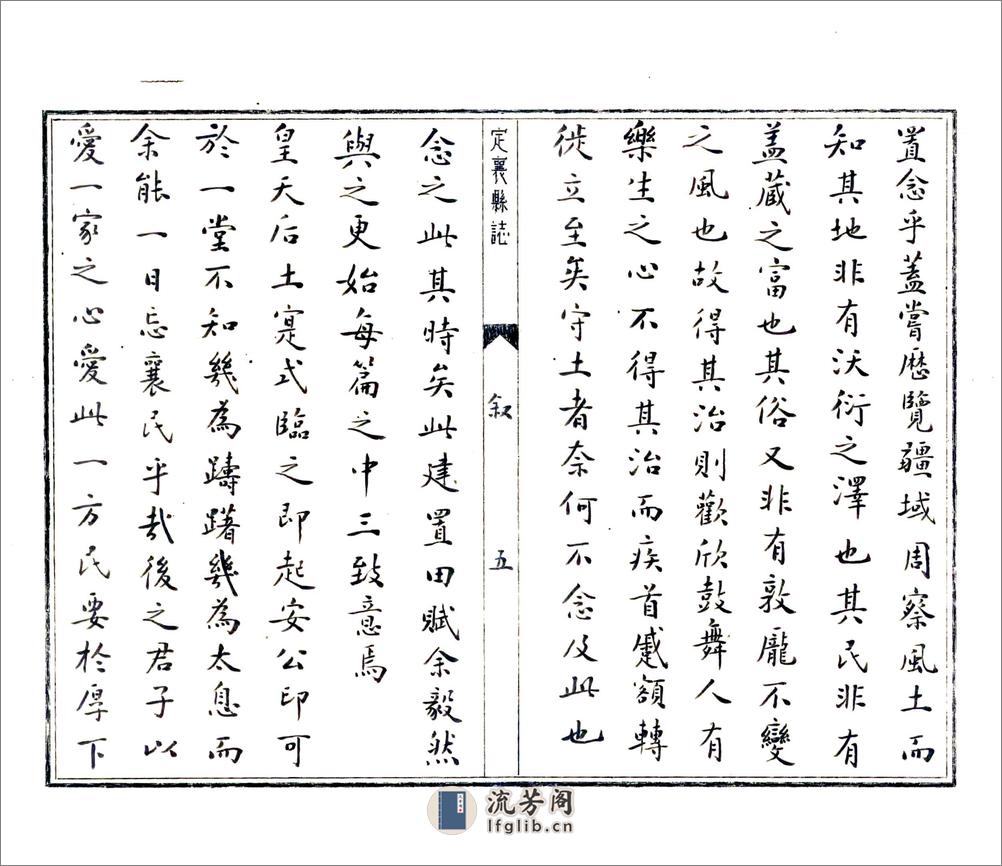 置念乎蓋嘗歷覽疆域周察風土而
知其地非有沃衍之澤也其民非有
蓋蔵之富也其俗又非有敦龐不變
之風也故得其治則歡欣鼓舞人有
樂生之心不得其治而疾首蹙額轉
徙立至矣守土者奈何不念及此也
定襄縣誌
叙
五
念之此其時矣此建置田賦余毅然
與之更始每篇之中三致意焉
皇天后土寔式臨之即起安公印可
於一堂不知幾為躊躇幾為太息而
余能一日忘襄民乎哉後之君子以
愛一家之心愛此一方民要於厚下
流芳阁
lfglib.cn